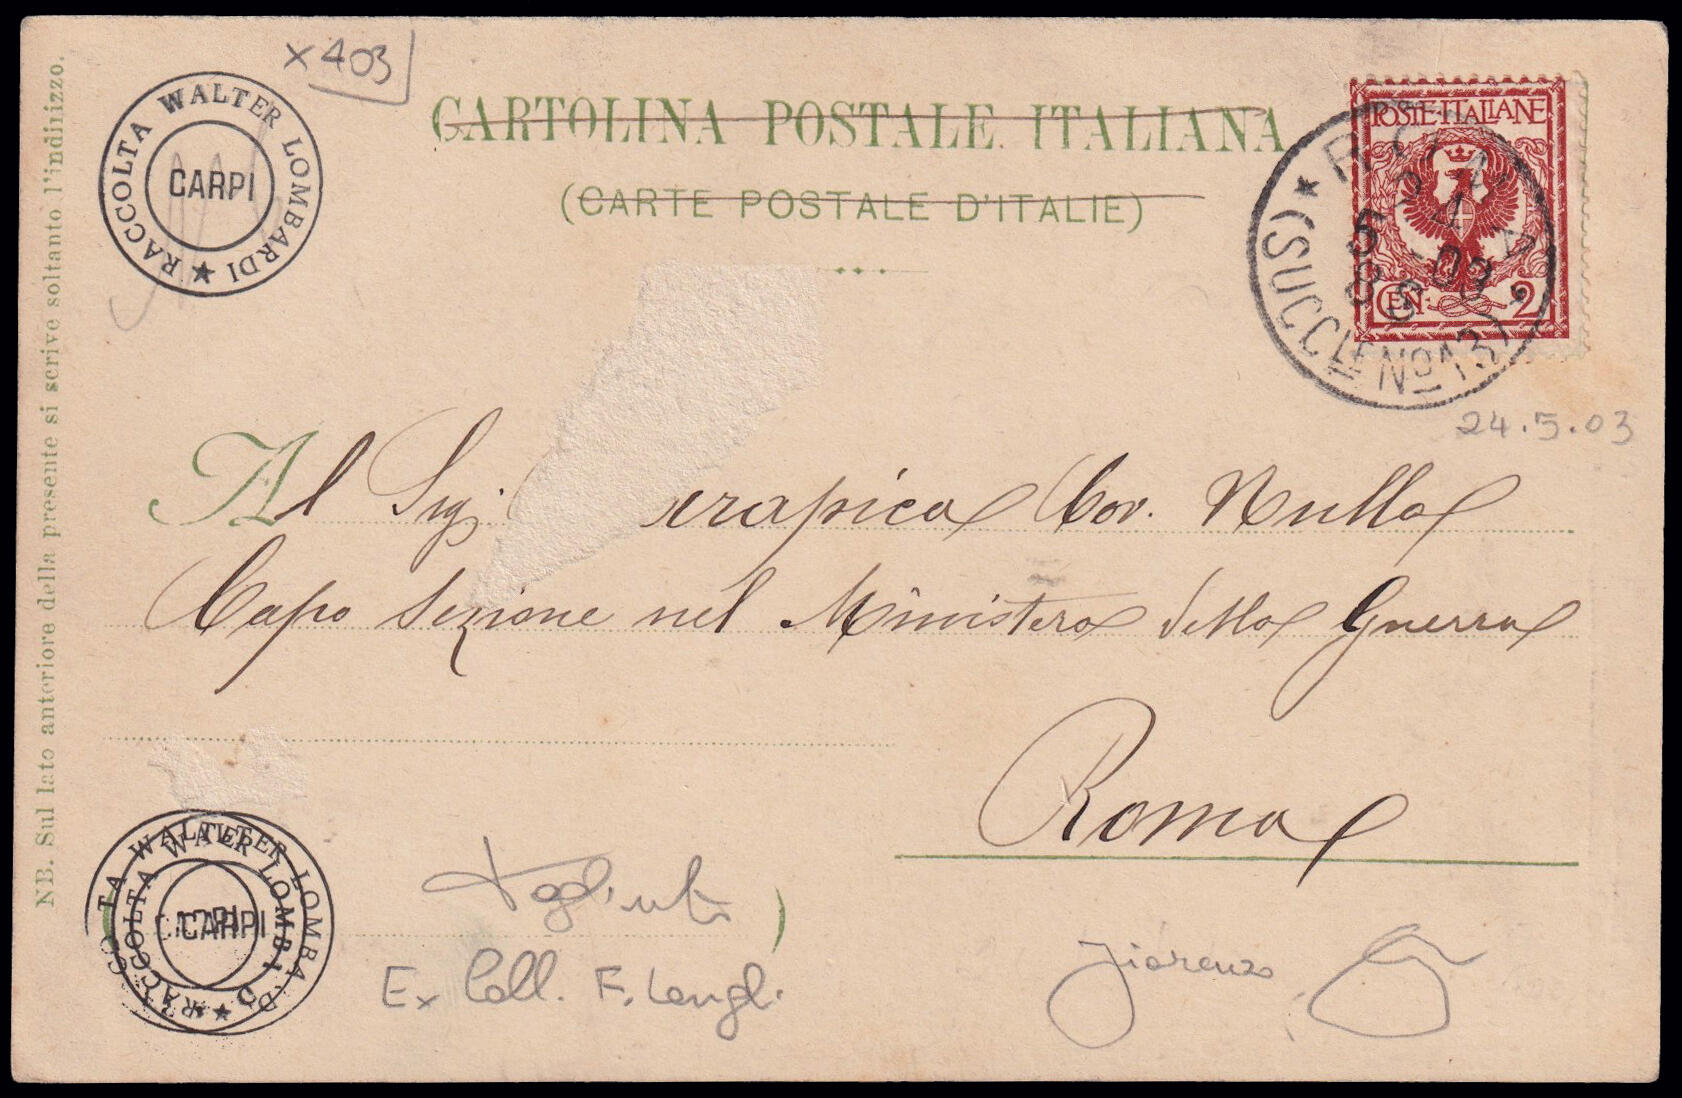 x 403
RACCOLTA WALTER LOMBARDI ★
CARPI
CARTOLINA POSTALE ITALIANA
(CARTE POSTALE D'ITALIE)
POSTE·ITALIANE
CEN. 2
ROMA
24
5
03
(SUCCLE No 13)
24.5.03
NB. Sul lato anteriore della presente si scrive soltanto l'indirizzo.
Al Sig. erapica Cav. Nulla
Capo Sezione nel Ministero della Guerra
Roma
RACCOLTA WALTER LOMBARDI ★
CARPI
Ex Coll. F.
Fiorenzo